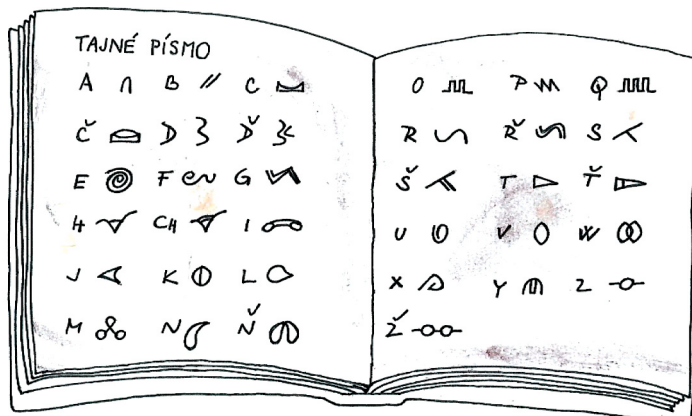 TAJNÉ PÍSMO
A B C
Č D Ď
E F G
H CH I
J K L
M N Ň
O P Q
R Ř S
Š T Ť
U V W
X Y Z
Ž